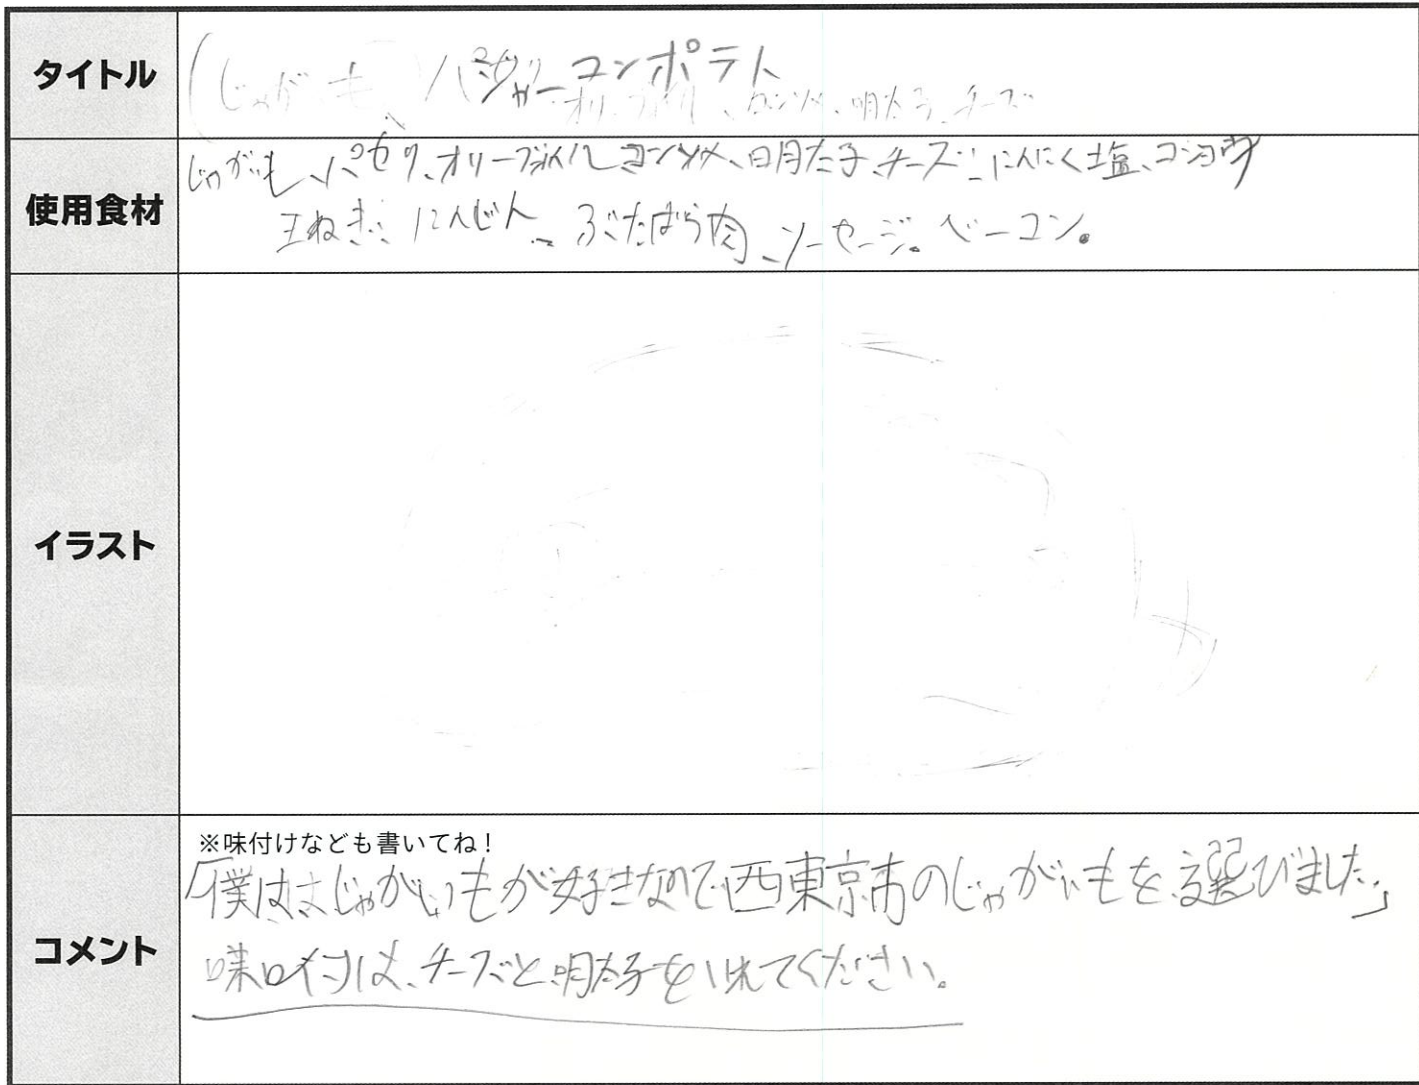 タイトル
コンポテト
明太子、チーズ
使用食材
じゃがいも、パセリ、オリーブオイル コンソメ、明太子、チーズ、にんにく塩、コショウ
玉ねぎ、にんじん、ぶたばら肉、ソーセージ。ベーコン。
イラスト
コメント
※味付けなども書いてね!
「僕はじゃがいもが好きなので西東京市のじゃがいもを選びました。」
味付は、チーズと明太子をいれてください。